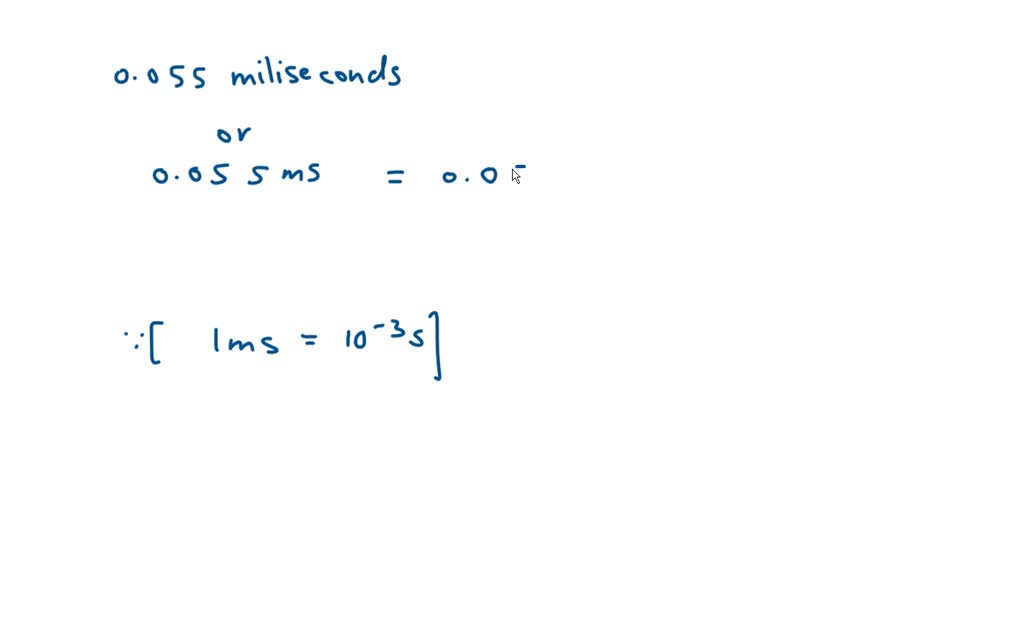 0.055 miliseconds
or
0.055 ms = 0.0
∵[ 1ms = 10⁻³s]